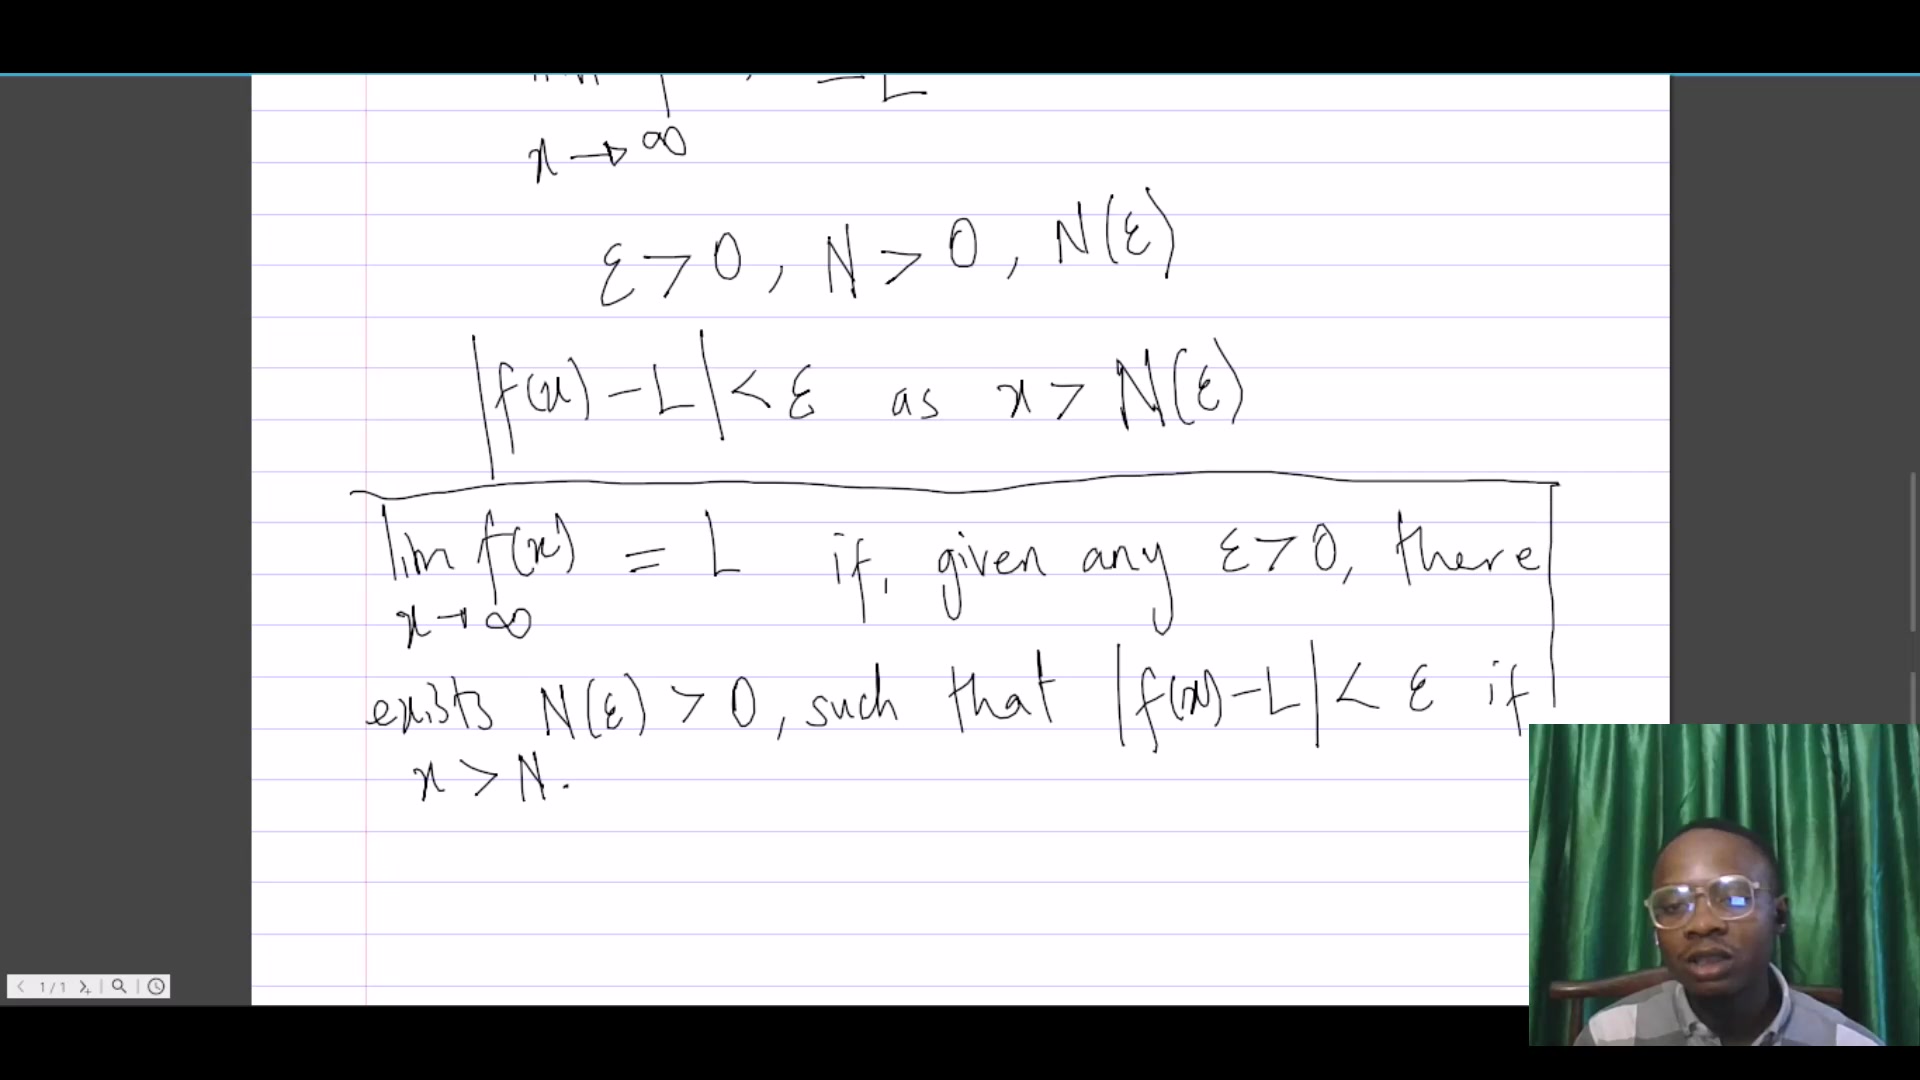 = L
x → ∞
ε > 0, N > 0, N(ε)
|f(x) - L| < ε as x > N(ε)
lim f(x) = L if, given any ε > 0, there
x → ∞
exists N(ε) > 0, such that |f(x) - L| < ε if
x > N.
1/1